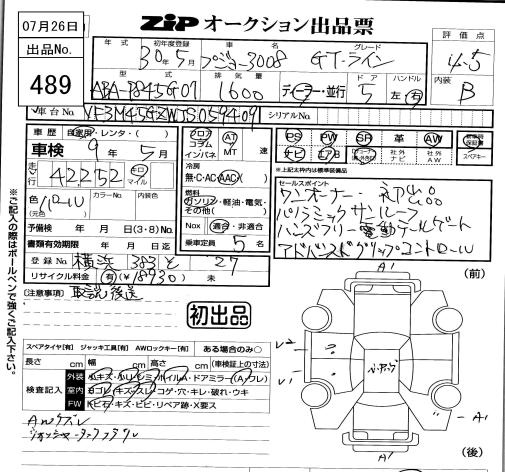 07月26日
ZIP オークション出品票
出品No.
489
年式 初年度登録 車名 グレード 評価点
30年5月 プジョー3008 GT-ライン 4.5
型式 排気量 ドア ハンドル 内装
ABA-P845G01 1600 ディーラー・並行 5 左 右 B
車台No. VF3M45GZWJS059409 シリアルNo.
車歴 自家用・レンタ・( )
フロア コラム インパネ
AT MT 速
PS PW SR 革 AW
ナビ エアB 社外ナビ 社外AW
保証書 スペアキー
車検 9年5月
冷房
無・C・AC・AAC
※上記太枠内は標準装備品
走行 42252 キロ マイル
燃料
ガソリン・軽油・電気・その他( )
セールスポイント
ワンオーナー 初出品
パノラミックサンルーフ
ハンズフリー電動テールゲート
アドバンスドグリップコントロール
色 カラーNo. 内装色
パール
(元色)
予備検 年 月 日 (3・8) No.
Nox 適合・非適合
書類有効期限 年 月 日迄
乗車定員 5 名
登録No 横浜 383 と 27
リサイクル料金 有 (¥18930)
(注意事項) 取説後送
初出品
(前)
A1
スペアタイヤ[有] ジャッキ工具[有] AWロックキー[有] ある場合のみ○
長さ cm 幅 cm 高さ cm (車検証上の寸法)
検査記入
外装 小キズ・小ヘコミ・ホイルA・ドアミラー(A・ワレ)
室内 ヨゴレ・キズ・スレ・コゲ・穴・キレ・破れ・ウキ
FW 飛石・キズ・ヒビ・リペア跡・X要ス
U2
U1
A1
A1
(後)
※ご記入の際はボールペンで強くご記入下さい。